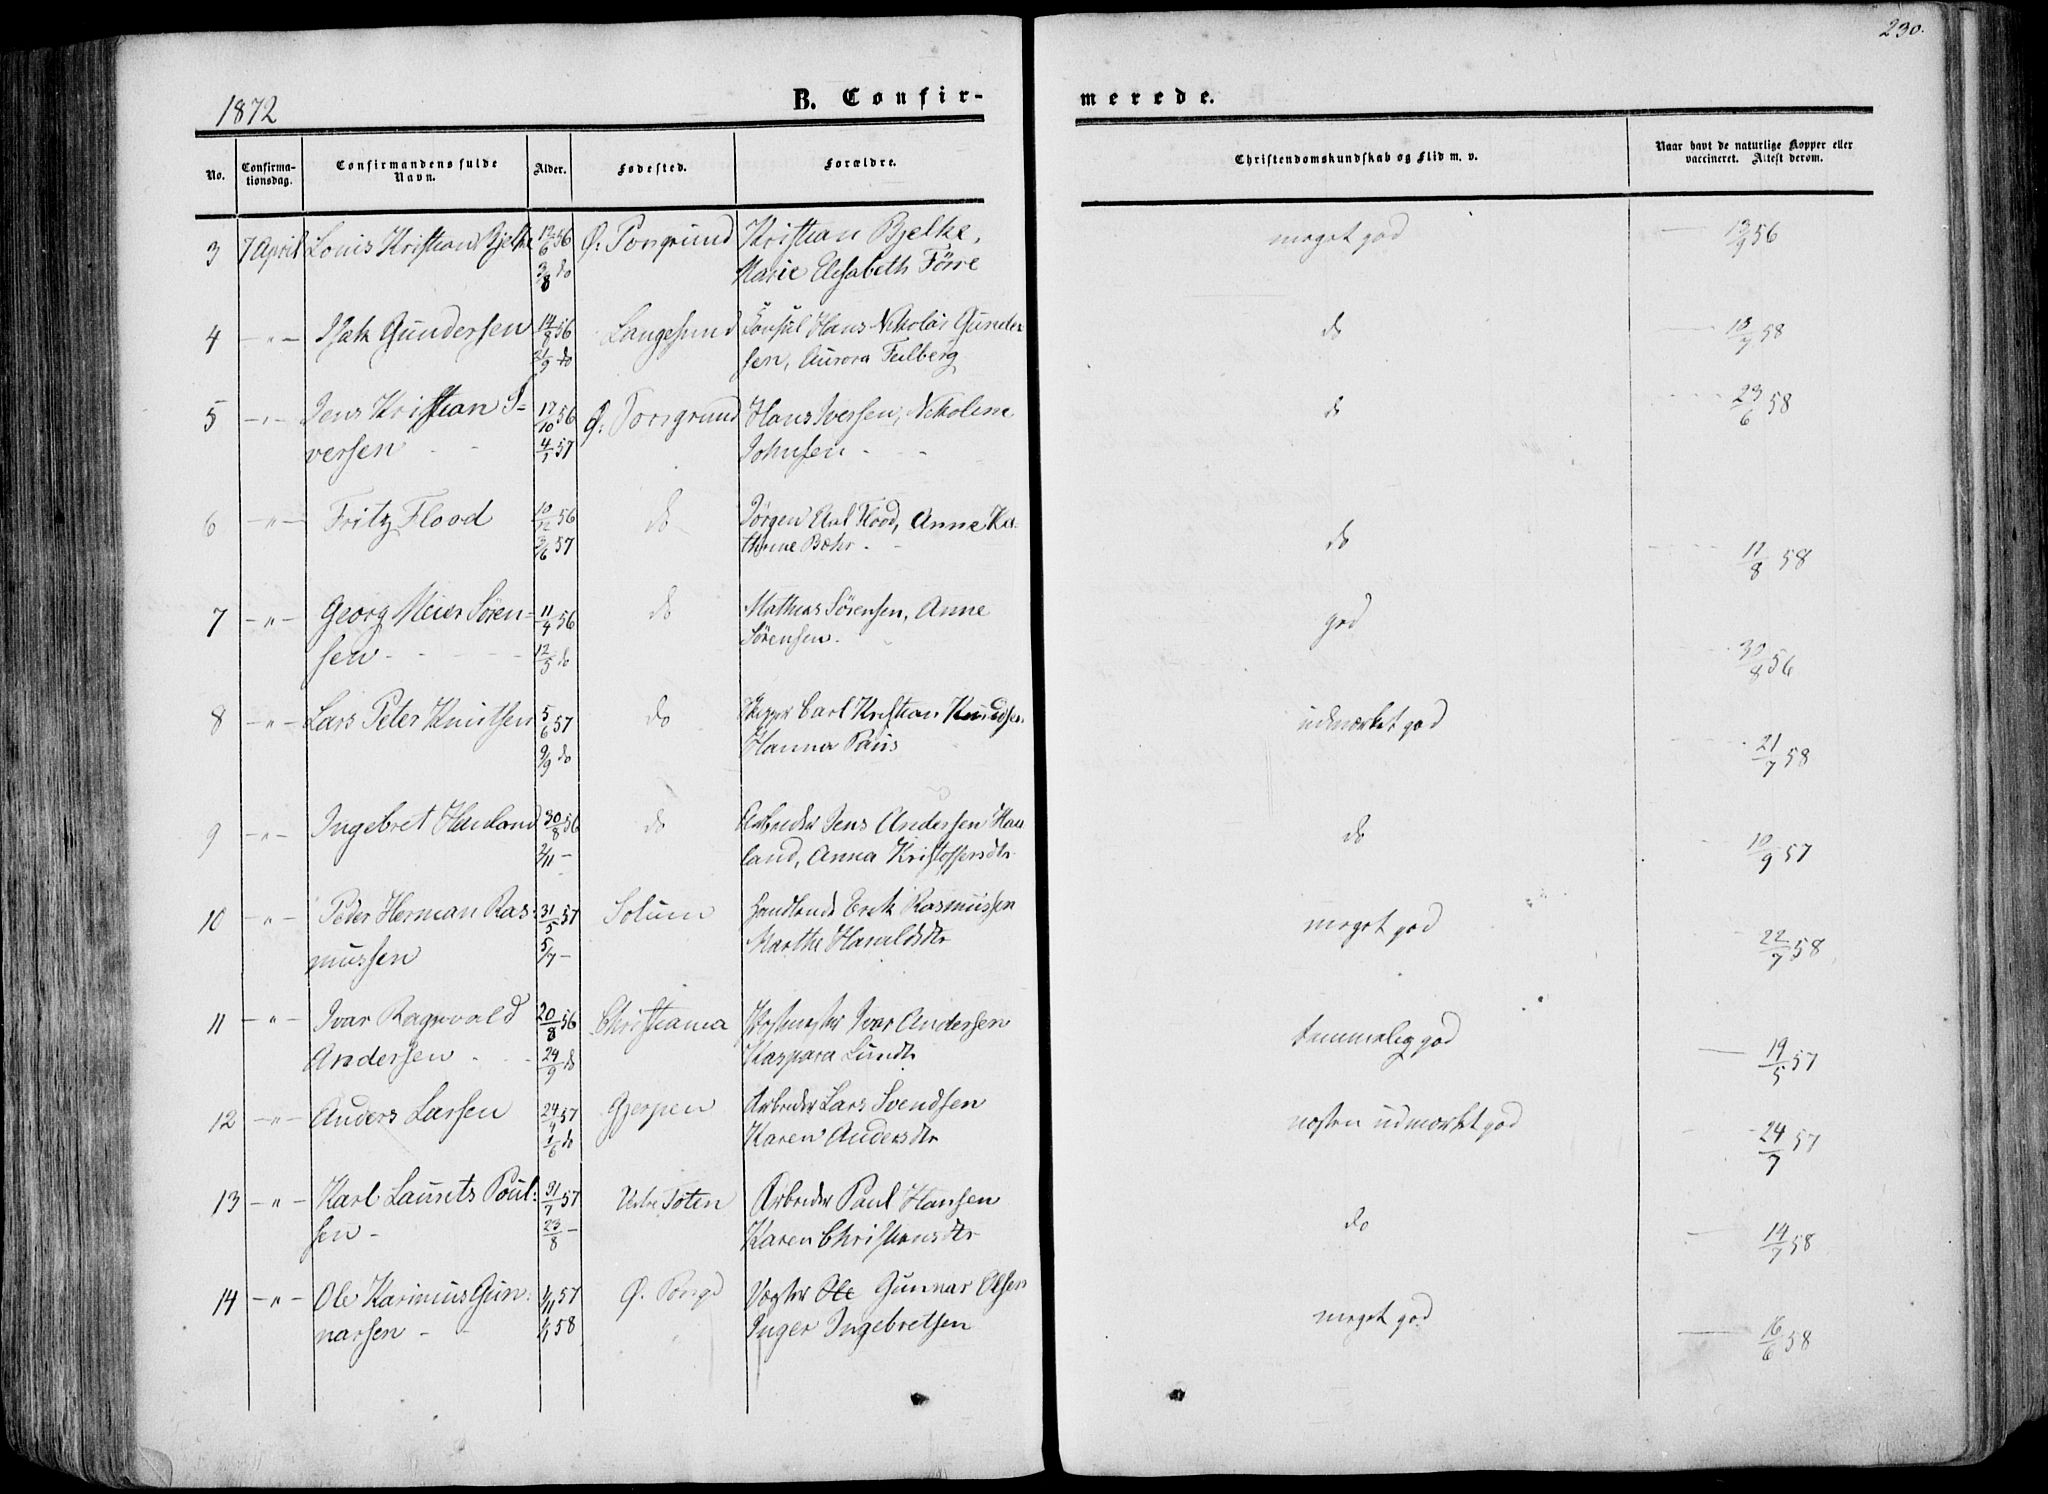 230.
1872
B. Confir-
merede.
No.
Confirma-
tionsdag.
Confirmandens fulde
Navn.
Alder.
Fødested.
Forældre.
Christendomskundskab og Flid m. v.
Naar havt de naturlige Kopper eller
vaccineret. Attest derom.
3 7 April Louis Kristian Bjelke 12/6 56 Ø: Porsgrund Kristian Bjelke, meget god 13/9 56
3/8 do Marie Elisabeth Förre
4 -"- Isak Gundersen 14/8 56 Langesund Consul Hans Nikolai Gunder do 13/7 58
21/9 do sen, Aurora
5 -"- Jens Kristian I= 17/10 56 Ø: Porsgrund Hans Iversen, Nikoline do 23/6 58
versen 4/1 57 Johnsen
6 -"- Fritz Flood 10/12 56 do Jørgen Aal Flood, Anne Ka- do 11/8 58
3/6 57 thrine Bøhr
7 -"- Georg Meier Sören- 11/4 56 do Mathias Sörensen, Anne god 30/8 56
sen 12/5 do Sörensen.
8 -"- Lars Peter Knutsen 5/6 57 do Skipper Carl Kristian Knudsen udmærket god 21/7 58
9/9 do Hanna Paus
9 -"- Ingebret Hauland 30/8 56 do Arbeider Jens Andersen Hau do 10/9 57
2/11 - land, Anna Kristoffersdtr
10 -"- Peder Herman Ras- 31/5 57 Solum Handlende Erik Rasmussen meget god 22/7 58
mussen 5/7 - Marthe Haraldsdtr
11 -"- Ivar Ragnvald 20/8 56 Christiania Ivar Andersen temmelig god 19/5 57
Andersen 24/9 do Kaspara Lund
12 -"- Anders Larsen 24/4 57 Gjerpen Arbeider Lars Svendsen næsten udmærket god 24/7 57
1/6 do Karen Andersdtr
13 -"- Karl Laurits Poul- 31/7 57 Vestre Toten Arbeider Paul Hansen do 14/7 58
sen 23/8 - Karen Christiansdtr
14 -"- Ole Karinius Gun- 1/11 57 Ø. Porsgd Vægter Ole Gunnar Olsen meget god 16/6 58
narsen 1/1 58 Inger Ingebretsen